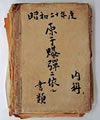 昭和二十年度
原子爆弾ニ依ル
書類
内科